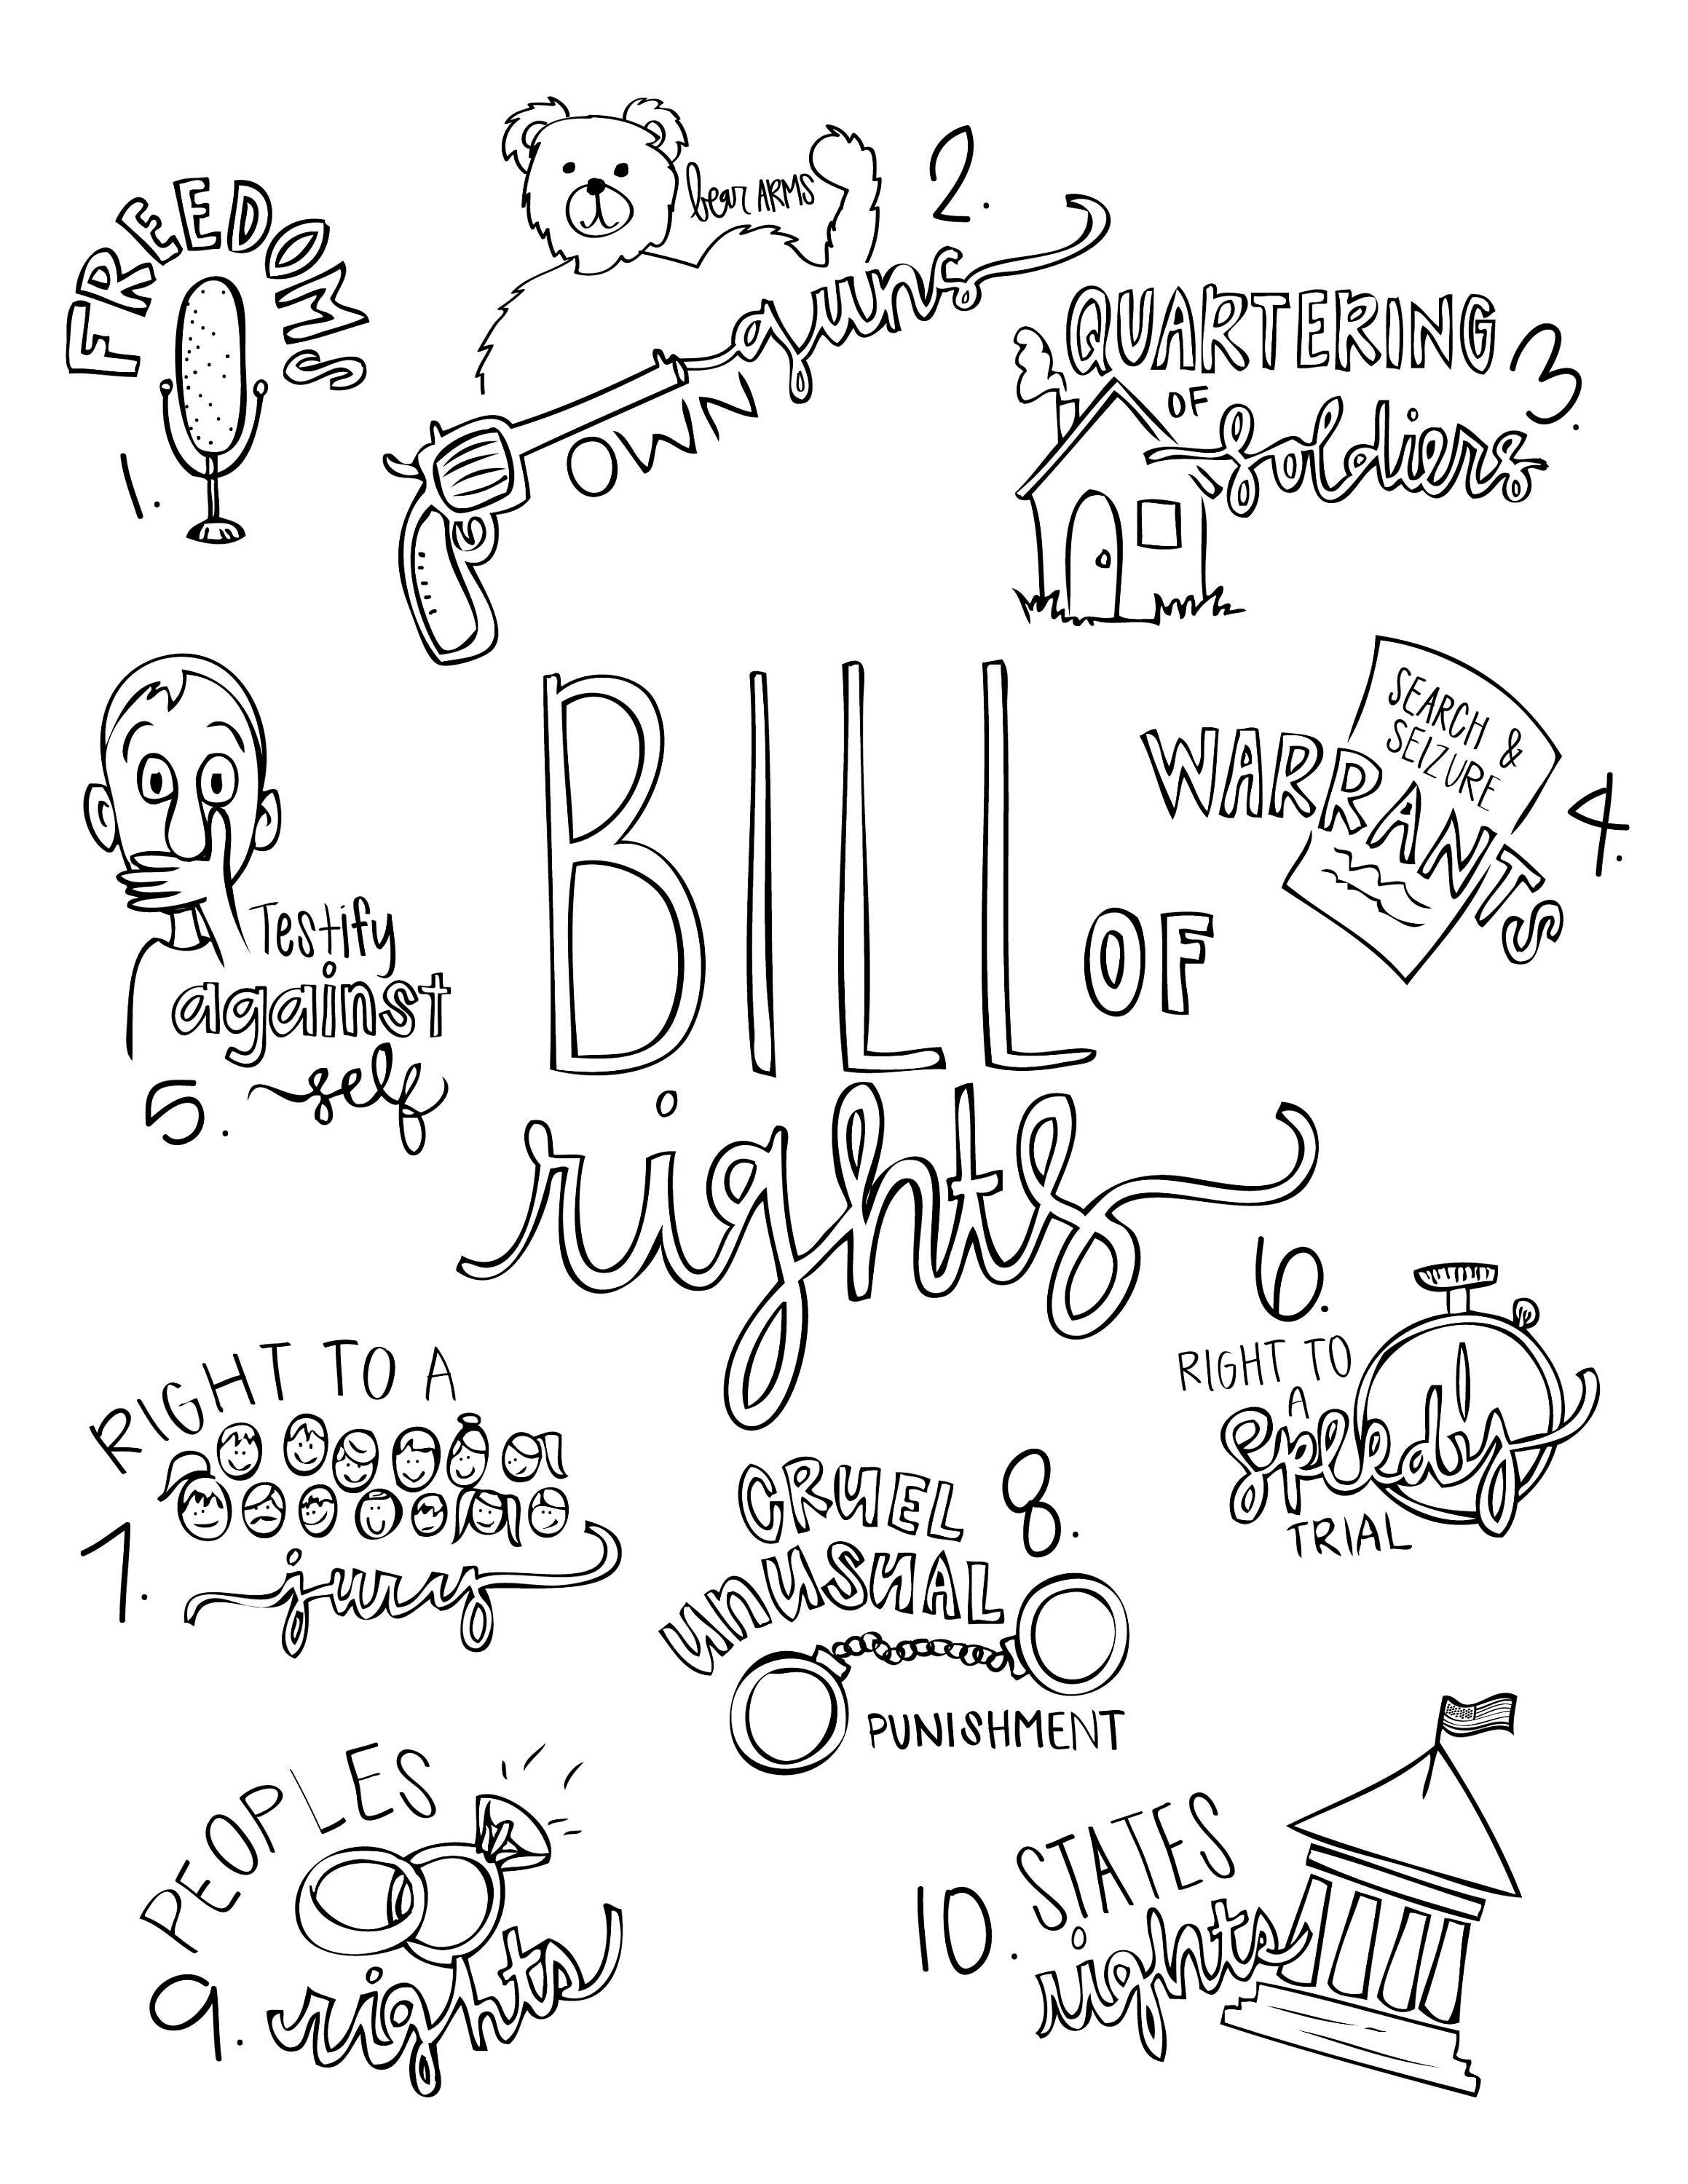 1.
FREEDOMS
2.
bear ARMS
OWN
guns
QUARTERING
OF
soldiers
3.
SEARCH &
SEIZURE
WARRANTS
4.
Testify
against
self
5.
BILL
OF
rights
6.
RIGHT TO
A
speedy
TRIAL
RIGHT TO A
jury
7.
CRUEL
UNUSUAL
PUNISHMENT
8.
PEOPLES
rights
9.
10.
STATES
rights